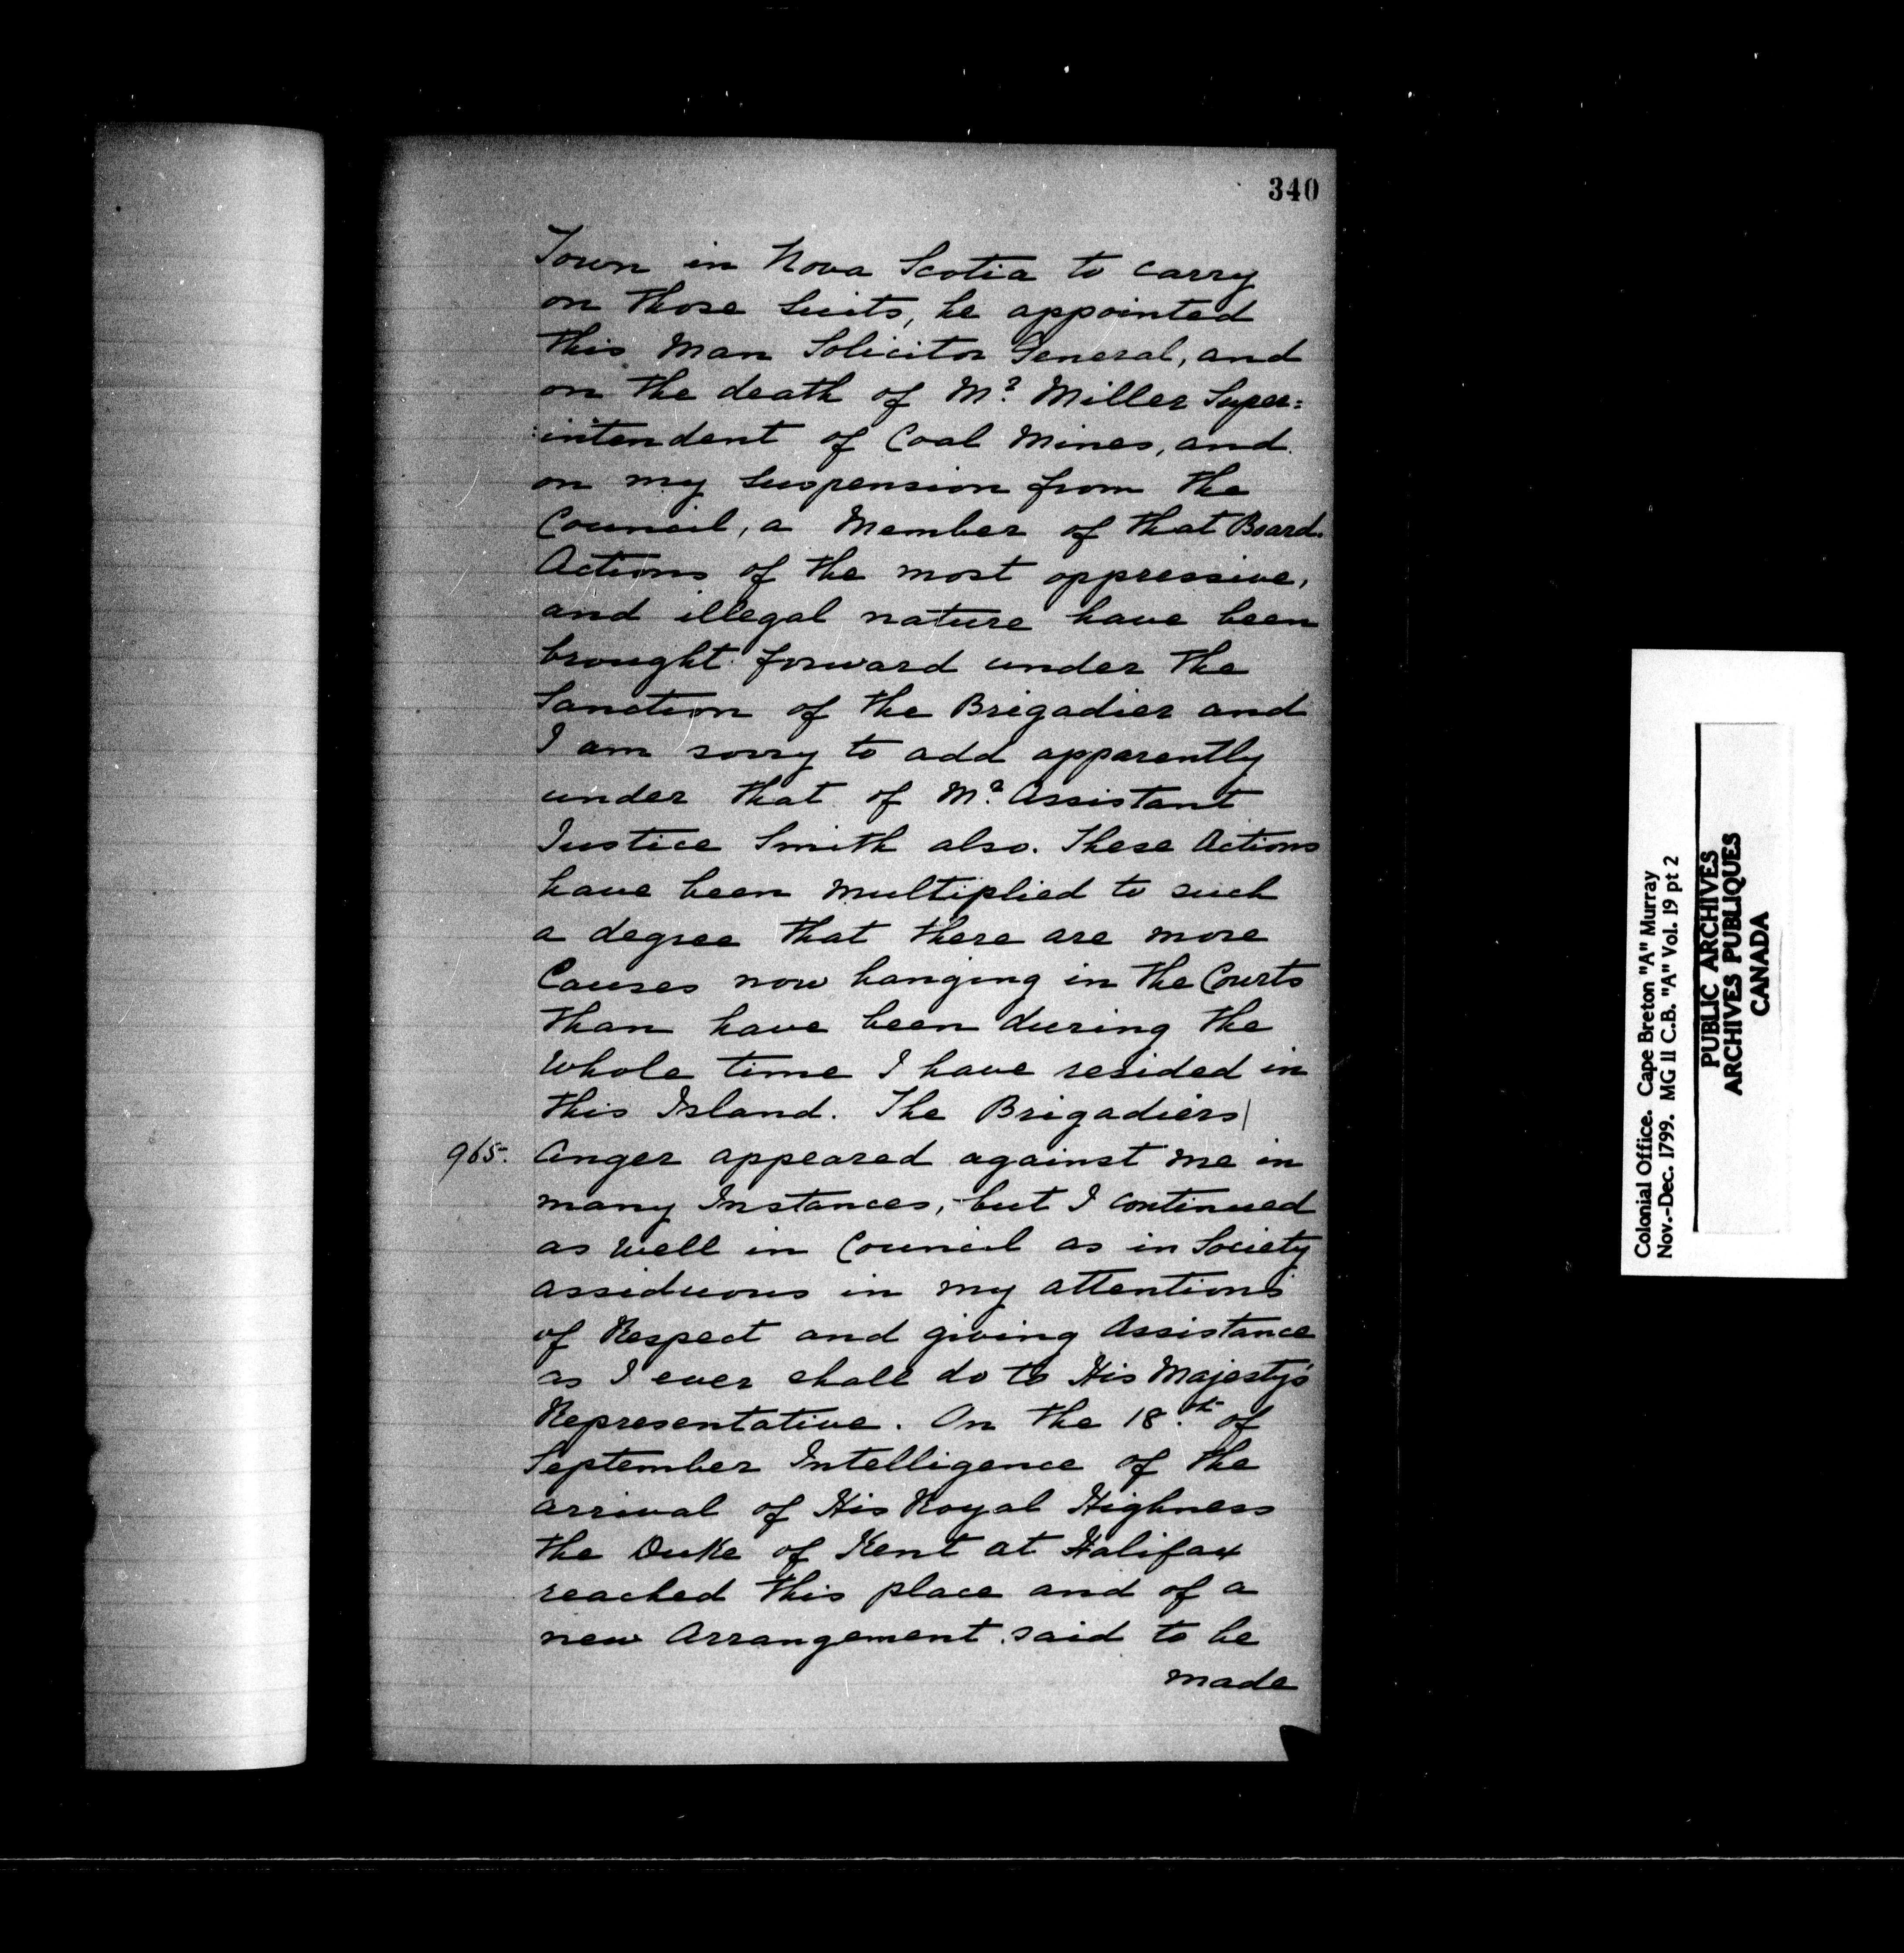 340
Town in Nova Scotia to carry
on those Suits, he appointed
this Man Solicitor General, and
on the death of Mr. Miller Super=
:intendent of Coal Mines, and
on my Suspension from the
Council, a Member of that Board.
Actions of the most oppressive,
and illegal nature have been
brought forward under the
Sanction of the Brigadier and
I am sorry to add apparently
under that of Mr. Assistant
Justice Smith also. These Actions
have been multiplied to such
a degree that there are more
Causes now hanging in the Courts
than have been during the
whole time I have resided in
this Island. The Brigadiers|
965. Anger appeared against me in
many Instances, but I continued
as well in Council as in Society
assiduous in my attentions
of Respect and giving Assistance
as I ever shall do to His Majesty's
Representative. On the 18.th of
September Intelligence of the
arrival of His Royal Highness
the Duke of Kent at Halifax
reached this place and of a
new Arrangement said to be
made
Colonial Office. Cape Breton "A" Murray
Nov.-Dec. 1799. MG 11 C.B. "A" Vol. 19 pt 2
PUBLIC ARCHIVES
ARCHIVES PUBLIQUES
CANADA